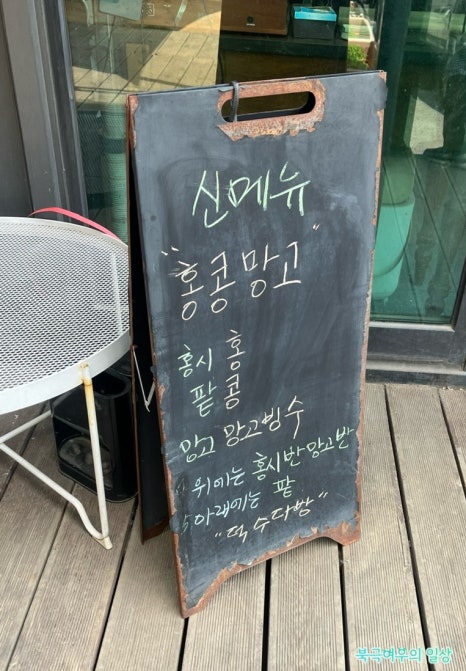 신메뉴
"홍콩망고"
홍시 홍
팥 콩
망고 망고빙수
위에는 홍시반 망고반
아래에는 팥
"덕수다방"
북극여우의 일상